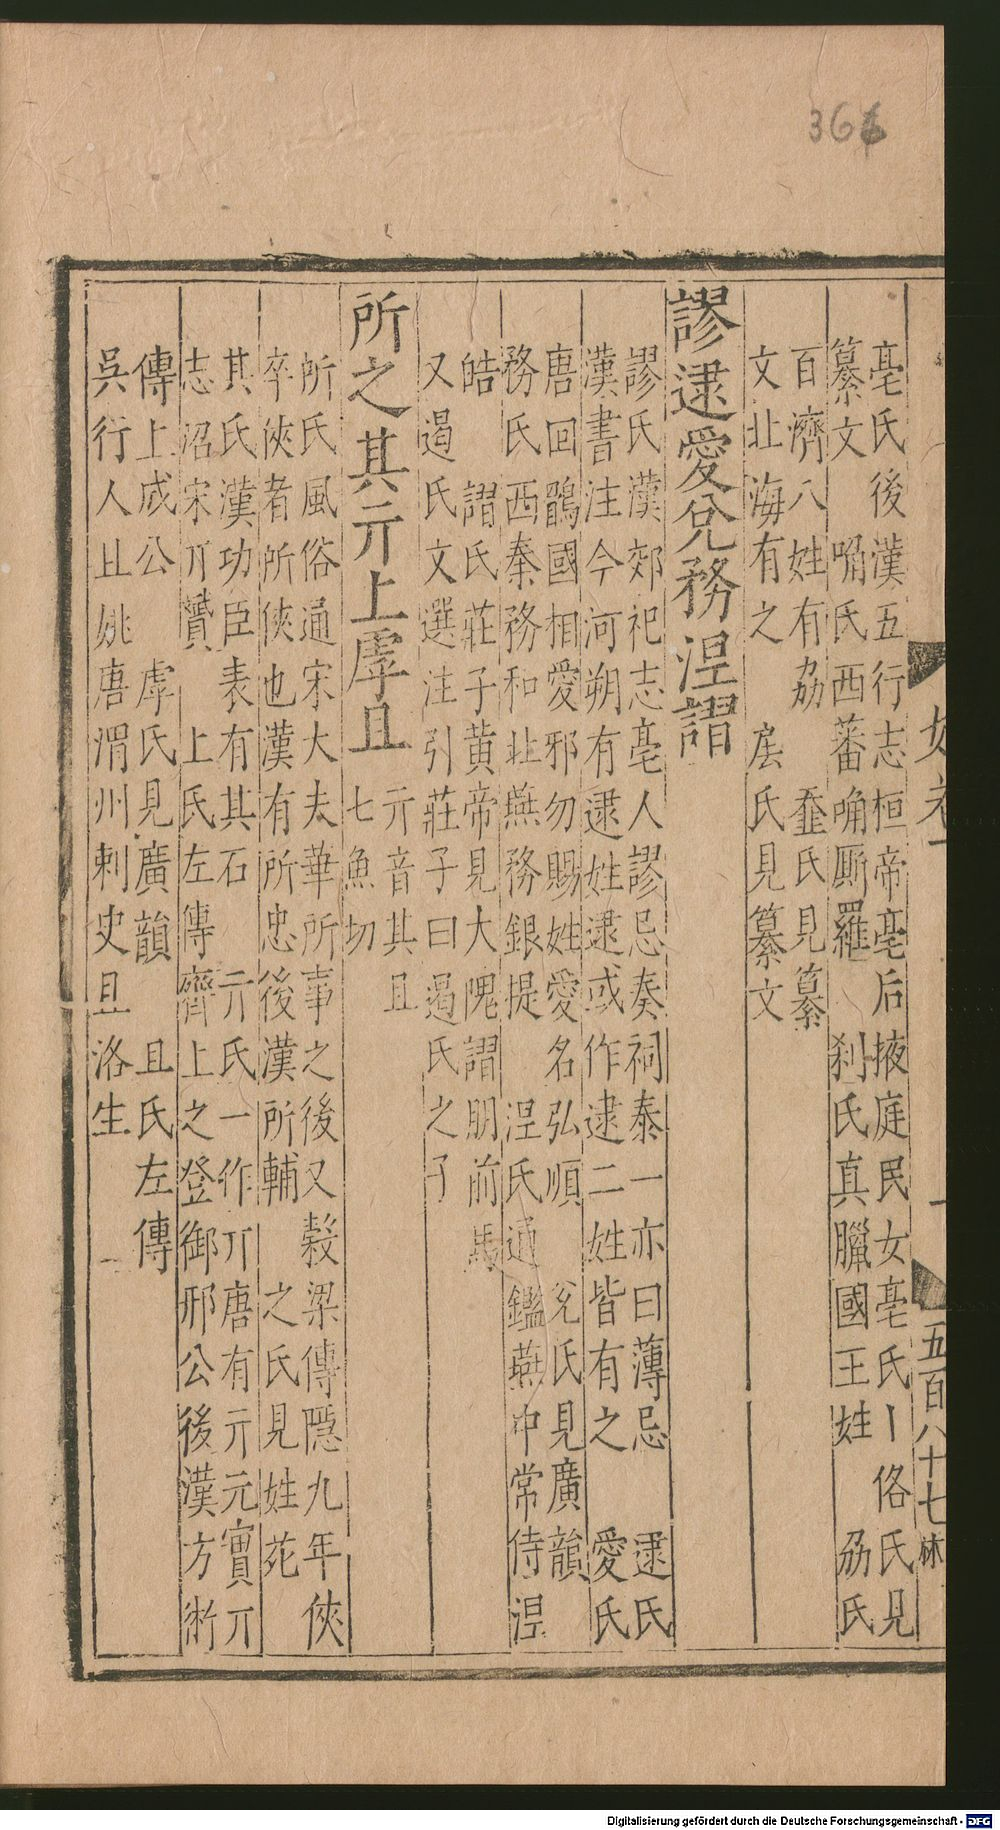 366
亳氏後漢五行志桓帝亳后掖庭民女亳氏丨俗氏見
纂文　𠴨氏西蕃𠴨厮羅　刹氏真臘國王姓　刕氏
百濟八姓有刕　韲氏見纂
文北海有之　㡯氏見纂文
謬逮愛兊務涅謂
謬氏漢郊祀志亳人謬忌奏祠泰一亦曰薄忌　逮氏
漢書注今河朔有逮姓逮或作逮二姓皆有之　愛氏
唐回鶻國相愛邪勿賜姓愛名弘順　兊氏見廣韻
務氏西秦務和北燕務銀提　涅氏通鑑燕中常侍涅
皓　謂氏莊子黄帝見大隗謂朋前馬
又遏氏文選注引莊子曰遏氏之子
所之其亓上虖且
亓音其且
七魚切
所氏風俗通宋大夫華所事之後又榖梁傳隱九年俠
卒俠者所俠也漢有所忠後漢所輔　之氏見姓苑
其氏漢功臣表有其石　亓氏一作丌唐有亓元實丌
志沼宋丌贇　上氏左傳齊上之登御邢公後漢方術
傳上成公　虖氏見廣韻　且氏左傳
吳行人且姚唐渭州刺史且洛生
五百八十七
林
Digitalisierung gefördert durch die Deutsche Forschungsgemeinschaft - DFG